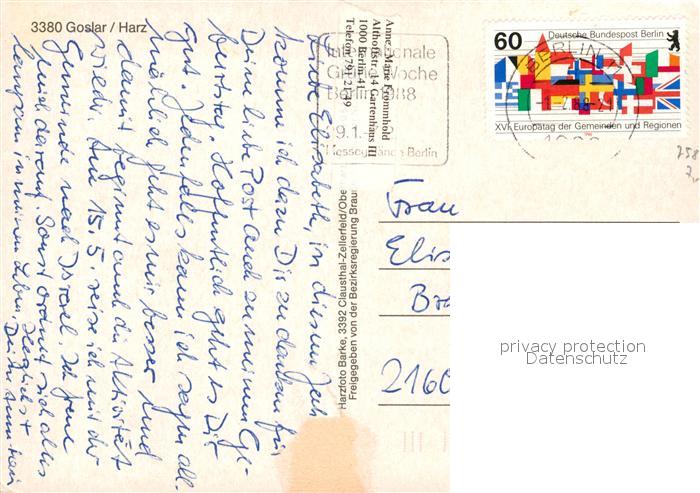 3380 Goslar / Harz
Anne-Marie Frommhold
Althoffstr. 14 Gartenhaus III
1000 Berlin 41
Telefon 791 21 49
Internationale
Grüne Woche
Berlin 1988
29.1.-
Messegelände Berlin
60
Deutsche Bundespost Berlin
BERLIN
XVI. Europatag der Gemeinden und Regionen
Liebe Elisabeth, in diesem Jahr
komm ich dazu Dir zu danken für
Deine liebe Post auch zu meinem Ge-
burtstag. Hoffentlich geht es Dir
gut. Jedenfalls kann ich sagen all-
mählich geht es mir besser und
damit beginnt auch die Aktivität
wieder. Am 15.5. reise ich mit der
Gemeinde nach Israel. Ich freue
mich darauf. Sonst ordnet sich alles
langsam in meinem Leben. Herzlichst
Harzfoto Barke, 3392 Clausthal-Zellerfeld/Obe
Freigegeben von der Bezirksregierung Braun
Frau
Elis
Br
2160
privacy protection
Datenschutz